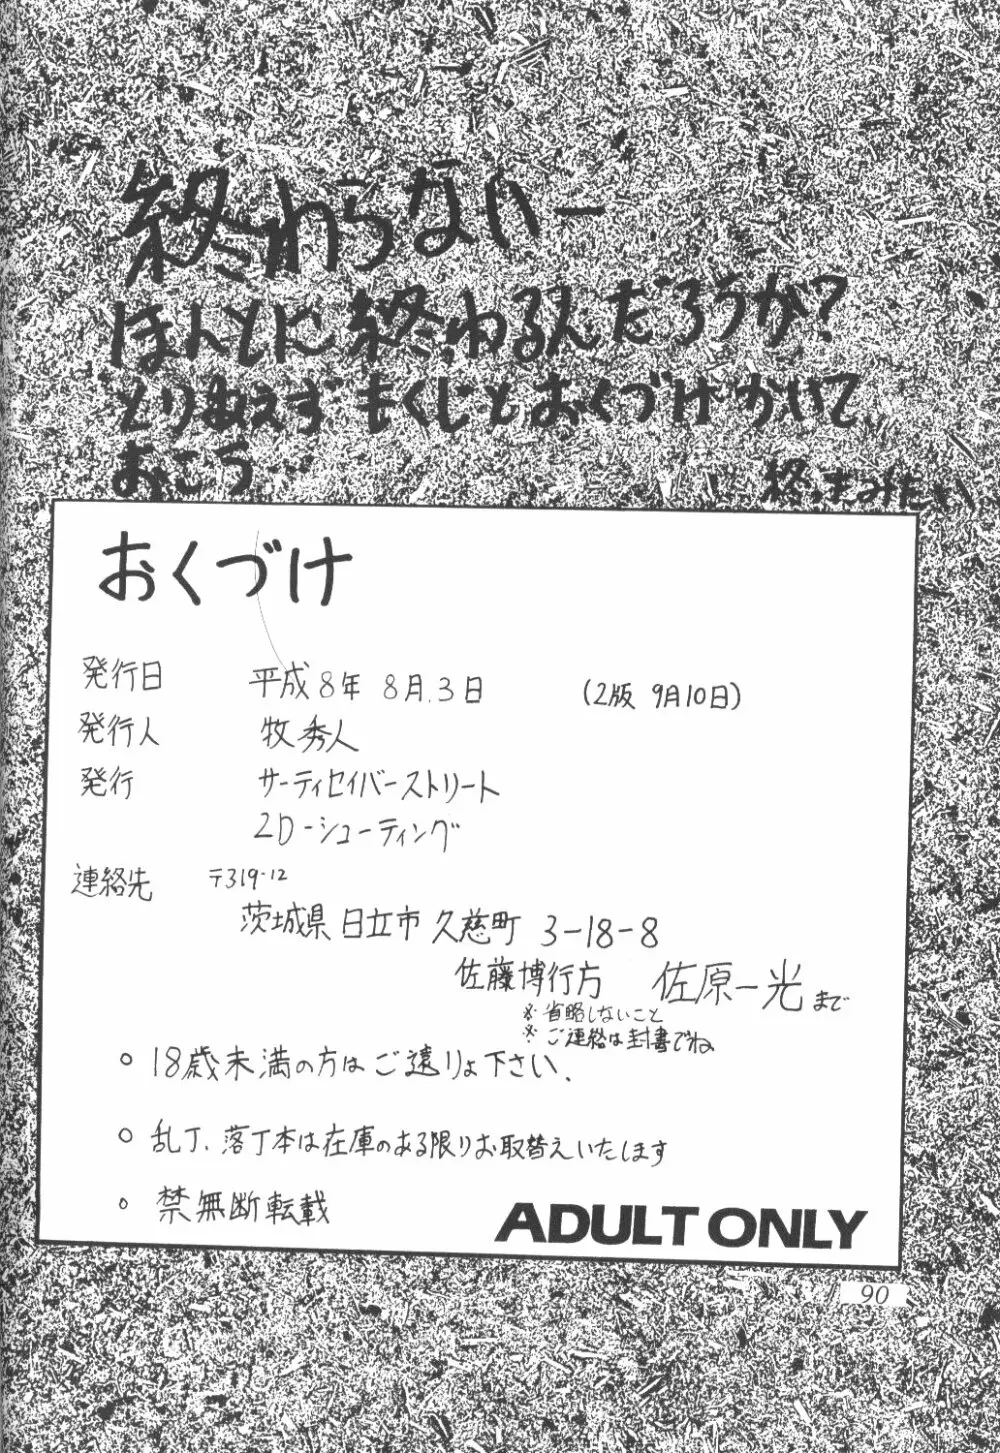 終わらないー
ほんとに終わるんだろうか?
とりあえずもくじとおくづけかいて
おこう…
終っちまみたい
おくづけ
発行日 平成8年 8月.3日 (2版 9月10日)
発行人 牧 秀人
発行 サーティセイバーストリート
2D-シューティング
連絡先 〒319-12
茨城県 日立市 久慈町 3-18-8
佐藤博行方 佐原一光まで
※省略しないこと
※ご連絡は封書でね
○ 18歳未満の方はご遠りょ下さい.
○ 乱丁、落丁本は在庫のある限りお取替えいたします
○ 禁無断転載
ADULT ONLY
90